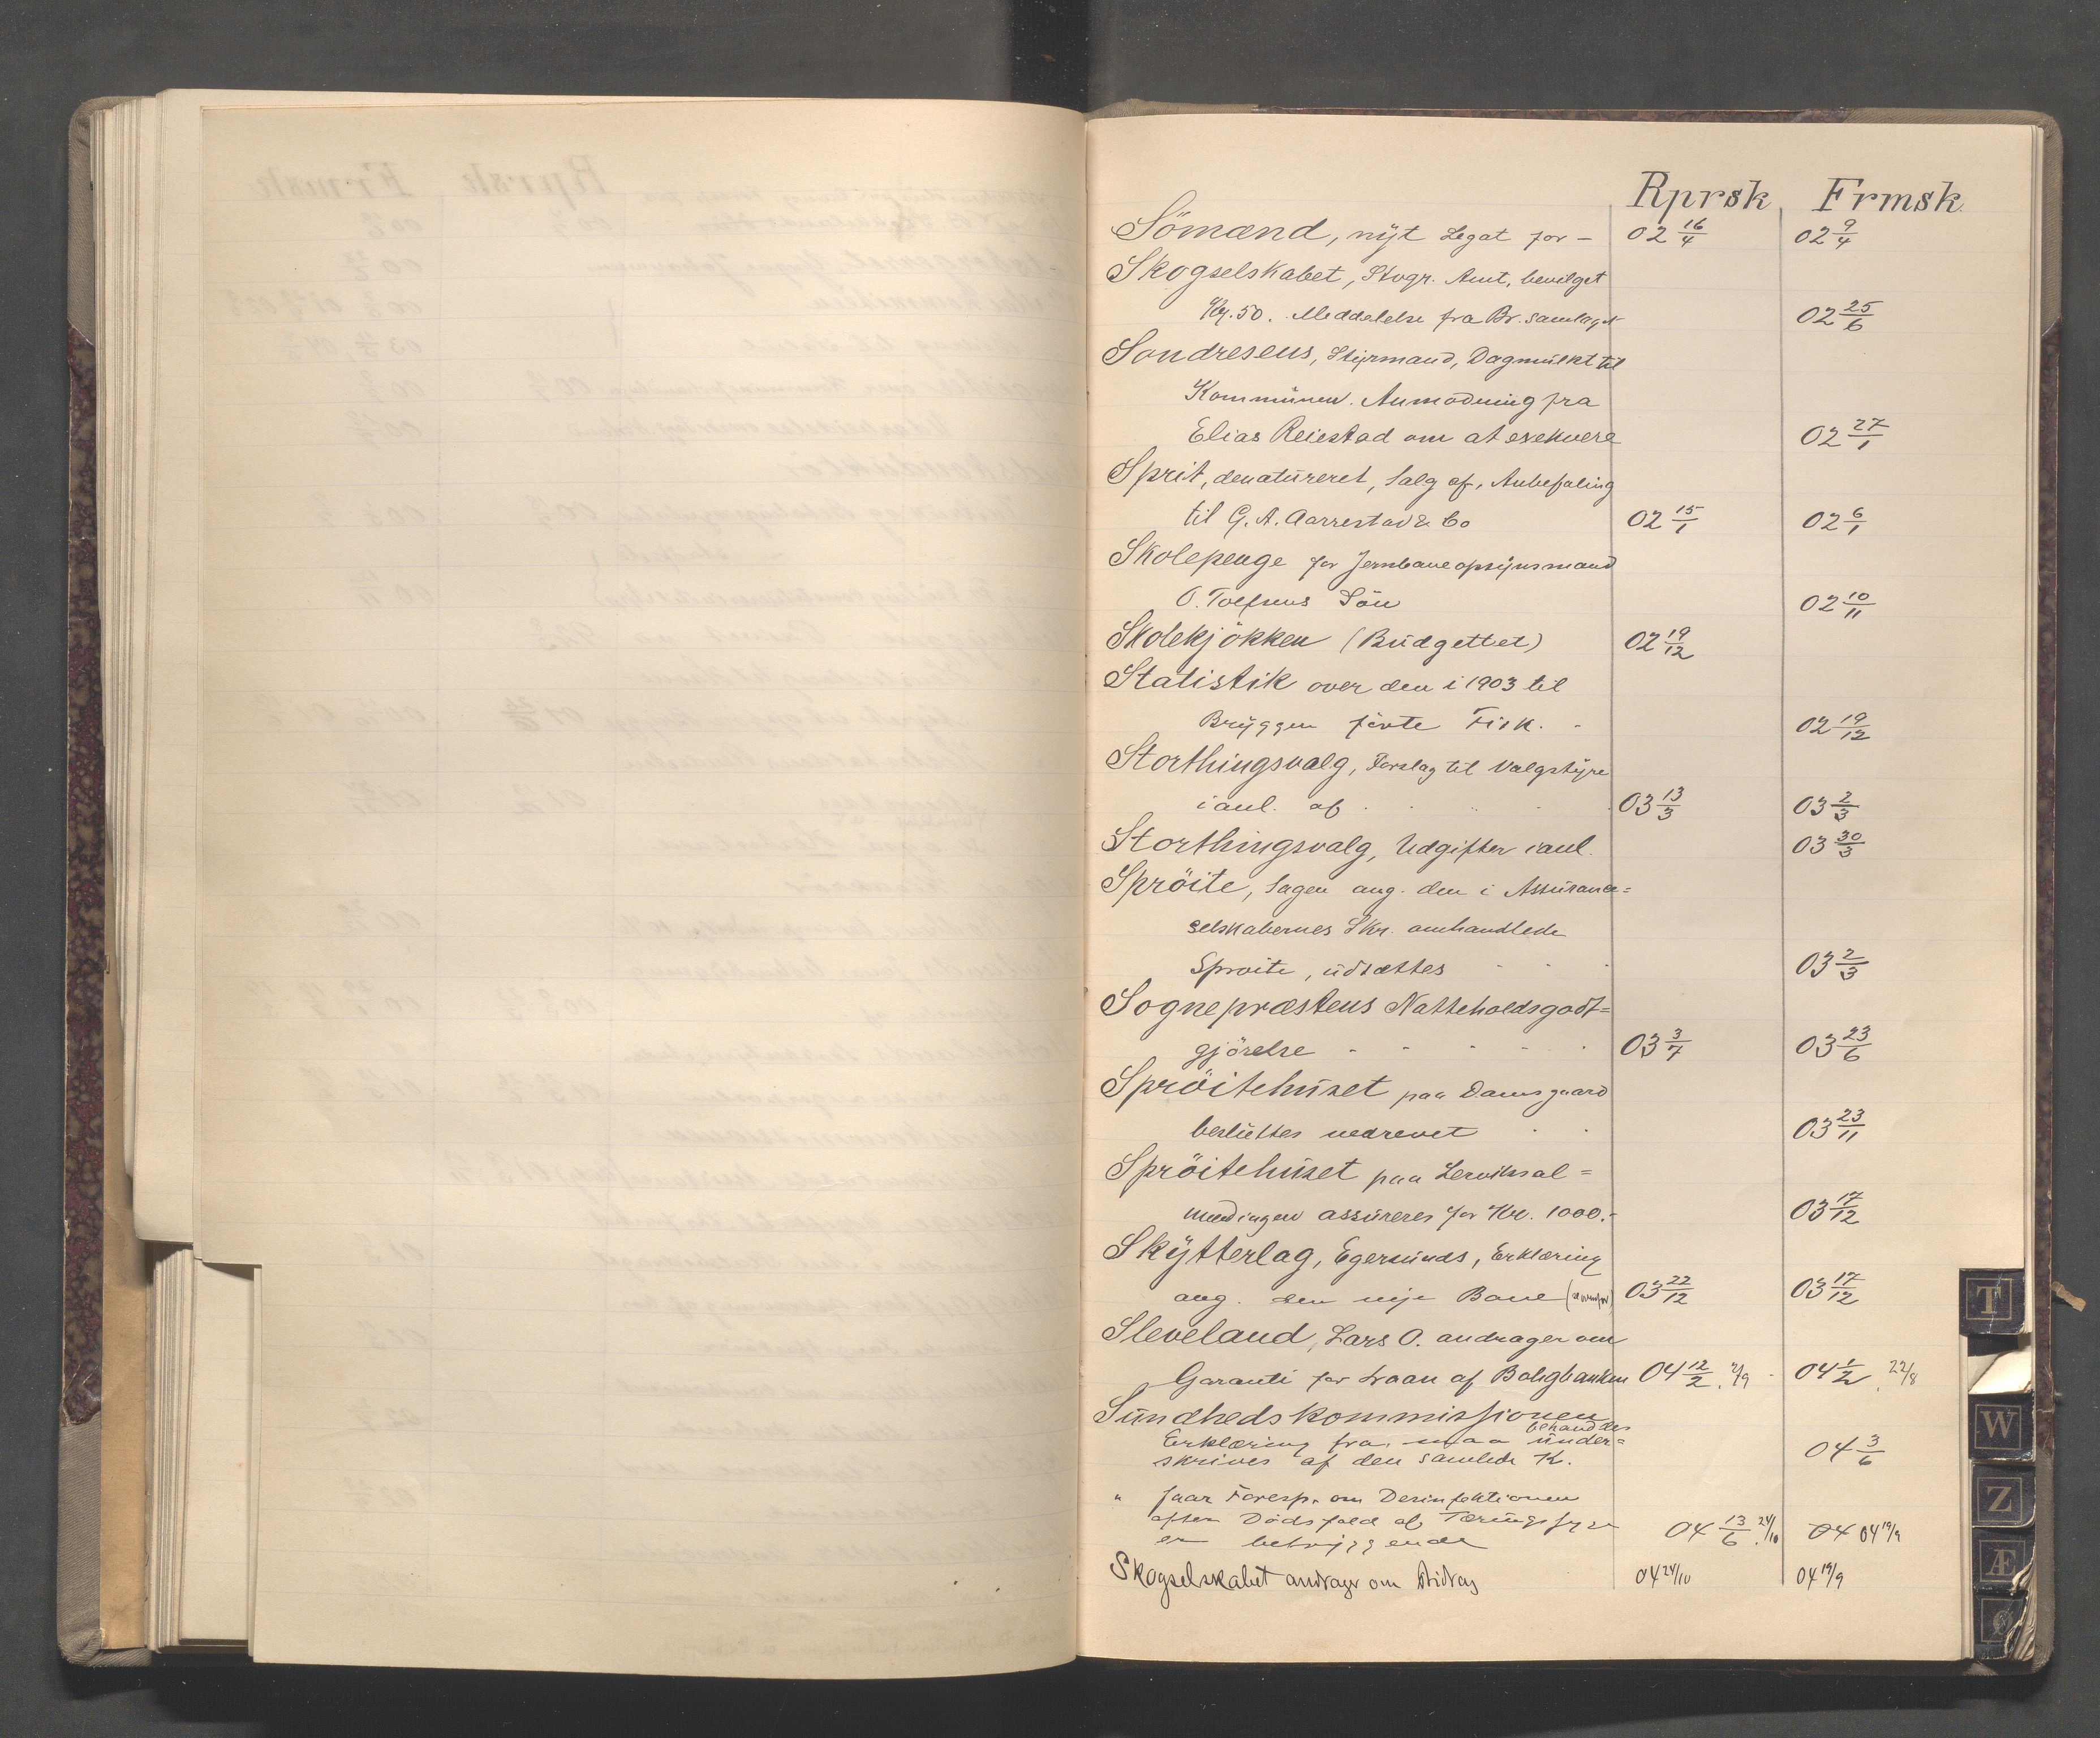 Rprsk Frmsk.
Sömænd, nÿt Legat for — 02 16/4 02 9/4
Skogselskabet, Stvgr. Amt, bevilget
Kr. 50. Meddelelse fra Br. samlaget 02 25/6
Sondresens, Stÿrmand, Dagmulkt til
Kommunen. Anmodning fra
Elias Reiestad om at exekvere 02 27/1
Sprit, denatureret, Salg af, Anbefaling
til G. A. Aarrestad & Co 02 15/1 02 6/1
Skolepenge for Jernbaneopsÿnsmand
O. Toefsens Sön 02 10/11
Skolekjökken (Budgettet) 02 19/12
Statistik over den i 1903 til
Brÿggen förte Fisk. 02 19/12
Storthingsvalg, Forslag til Valgstÿre
i anl. af 03 13/3 03 2/3
Storthingsvalg, Udgifter i anl. 03 30/3
Spröite, Sagen ang. den i Assurance=
selskabernes Skr. omhandlede
Sproite, udsættes 03 2/3
Sognepræstens Natteholdsgodt=
gjörelse 03 3/7 03 23/6
Spröitehuset paa Damsgaard
besluttes nedrevet 03 23/11
Spröitehuset paa Lerviksal=
mendingen assureres for Kr. 1000.- 03 17/12
Skÿtterlag, Egersunds, Erklæring
ang. den nye Bane 03 22/12 03 17/12
Sleveland, Lars O. andrager om
Garanti for Laan af Boligbanken 04 12/2, 2/9 04 1/2, 22/8
Sundhedskommissionen
behandles
Erklæring fra, maa under=
skrives af den samlede K. 04 3/6
" faar Foresp. om Desinfektionen
efter Dödsfald af Tæringssyge
er betryggende 04 13/6, 24/10 04 04 19/9
Skogselskabet andrager om Bidrag 04 24/10 04 19/9
T
W
Z
Æ
Ø